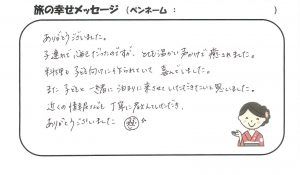 旅の幸せメッセージ （ペンネーム：　　　　　）
ありがとうございました。
子連れで心配だったのですが、とても温かい声かけで癒されました。
お料理も子ども向けに作られていて喜んでいました。
また子どもと一緒に泊まりに来させていただきたいと思いました。
近くの情報なども丁寧に教えていただき、
ありがとうございました